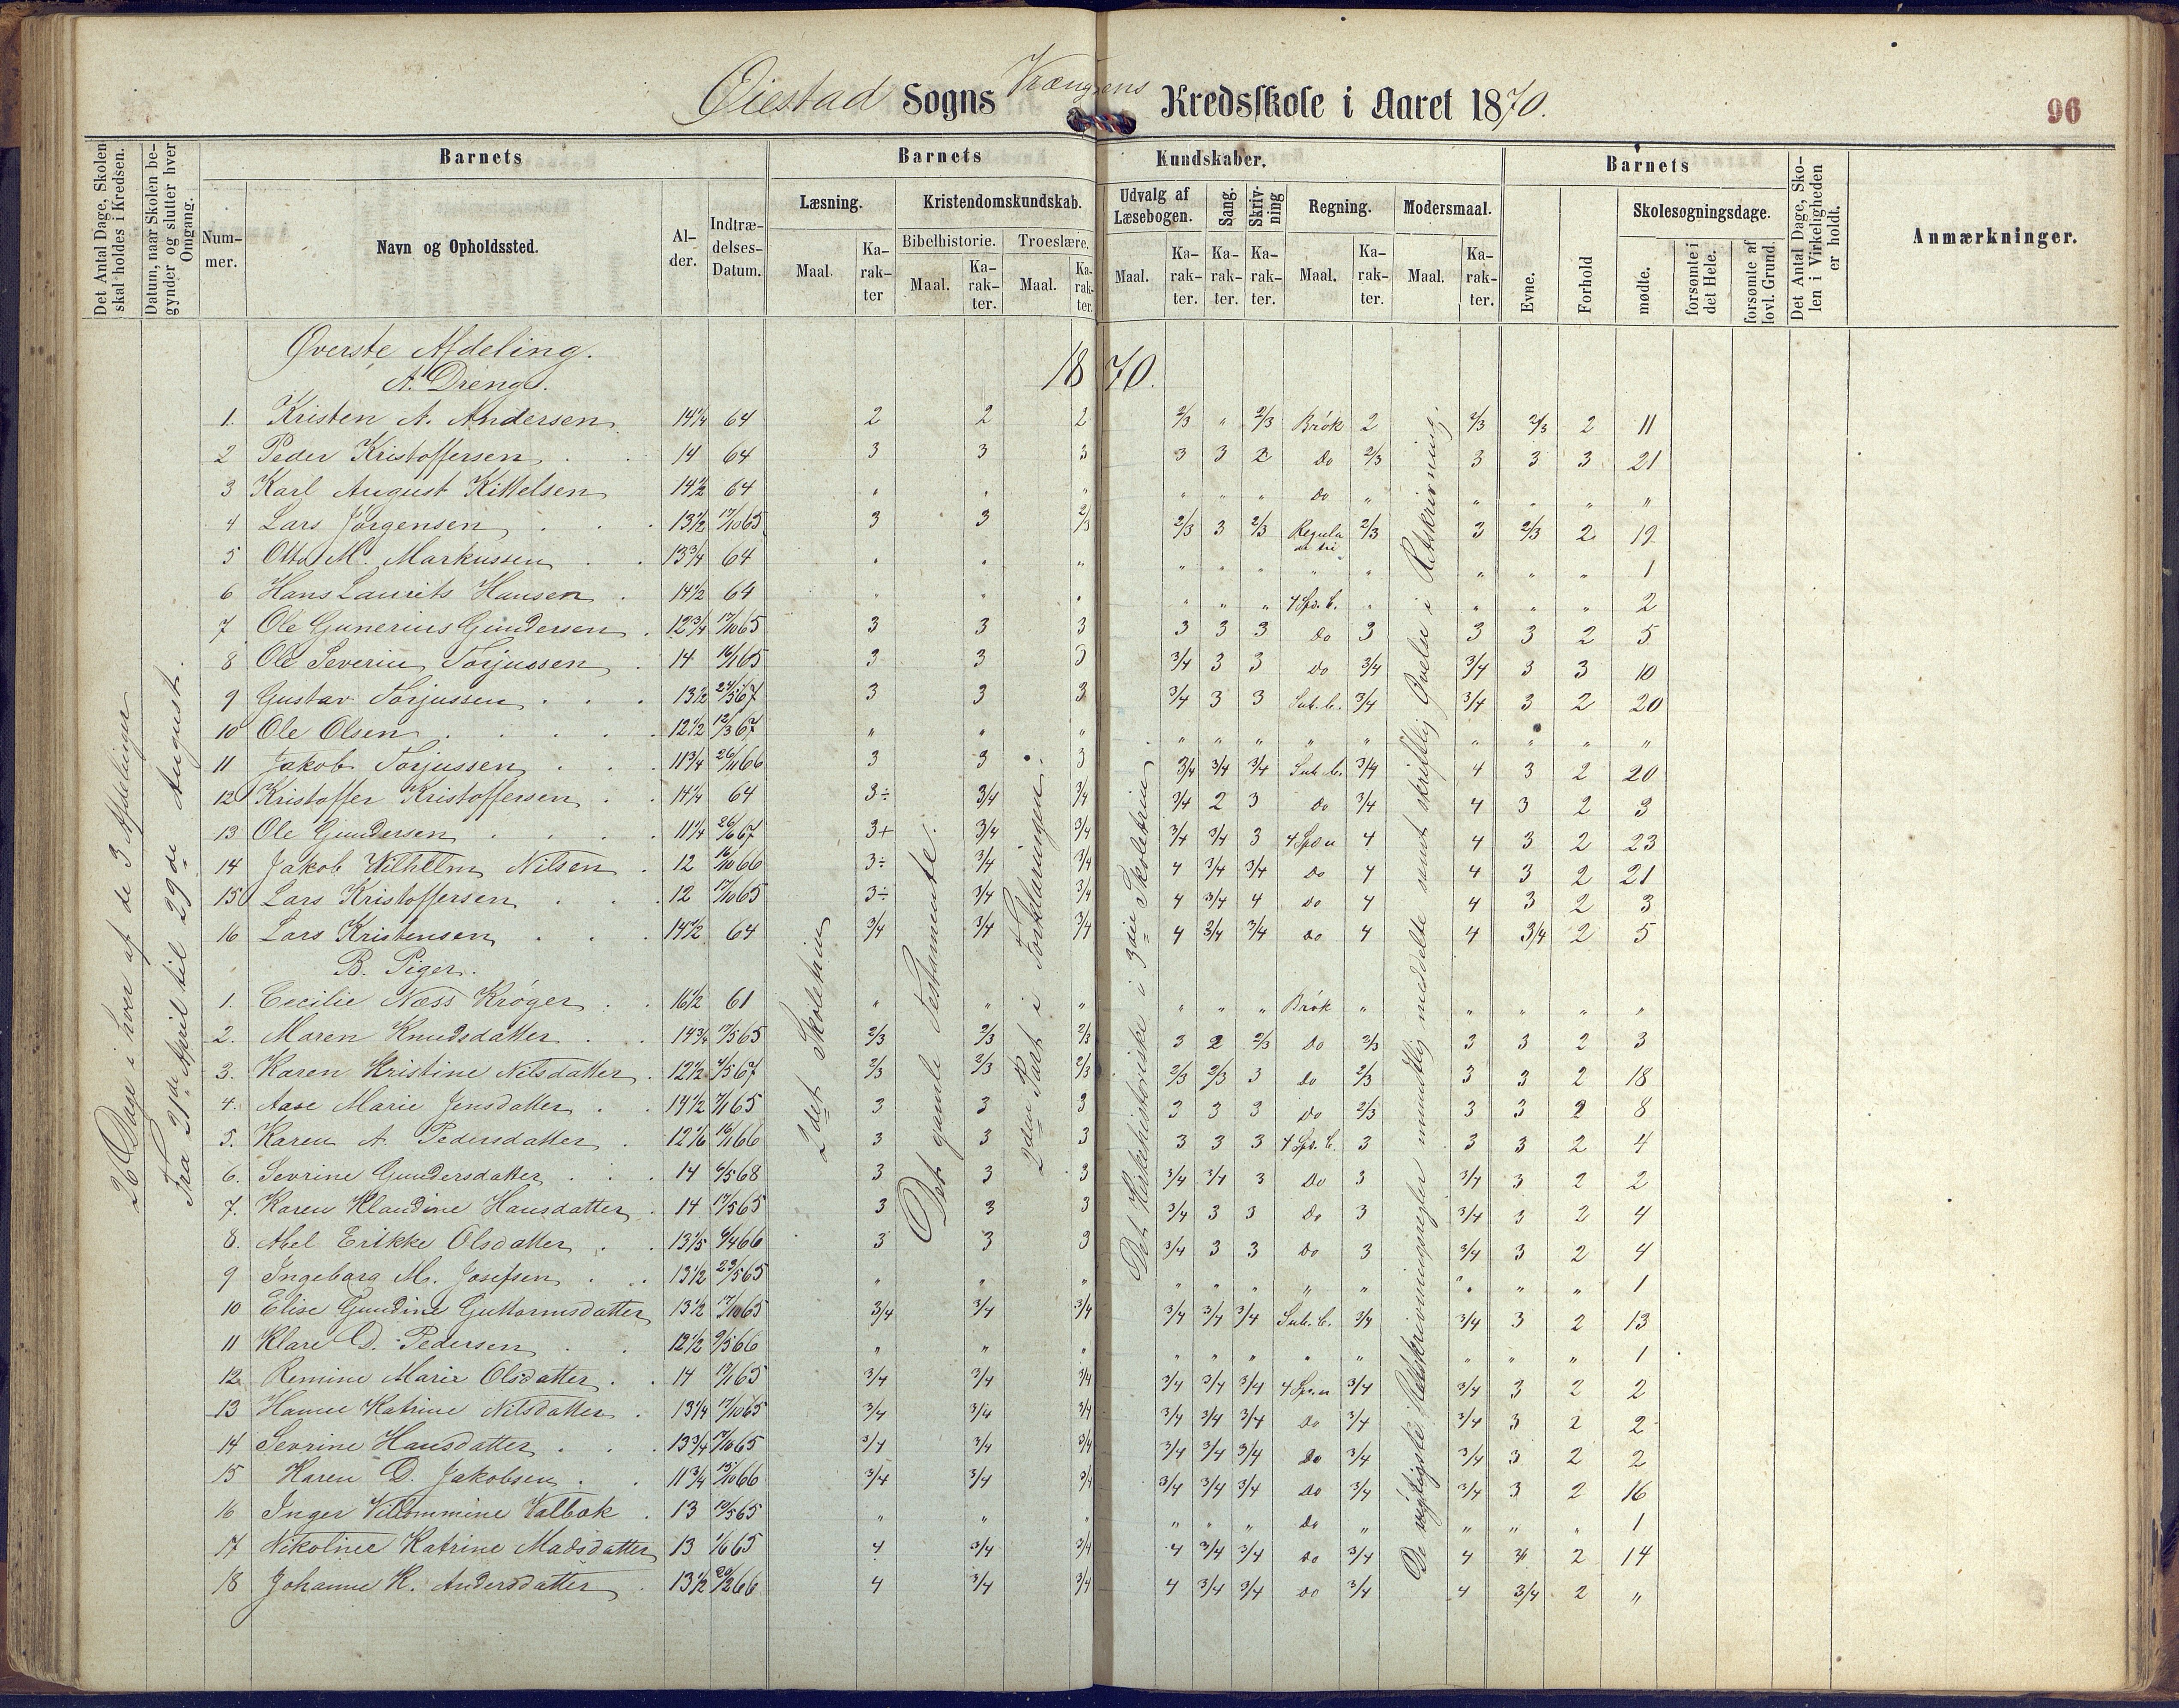 Øiestad Sogns Vrængens Kredsskole i Aaret 1870.
96
Det Antal Dage, Skolen skal holdes i Kredsen.
Datum, naar Skolen begynder og slutter hver Omgang.
Barnets
Nummer.
Navn og Opholdssted.
Alder.
Indtrædelses-Datum.
Barnets Kundskaber.
Læsning.
Maal. Karakter
Kristendomskundskab.
Bibelhistorie. Troeslære.
Maal. Karakter. Maal. Karakter.
Udvalg af Læsebogen.
Maal. Karakter.
Sang. Karakter.
Skrivning Karakter.
Regning.
Maal. Karakter.
Modersmaal.
Maal. Karakter.
Barnets
Evne.
Forhold
Skolesøgningsdage.
mødte.
forsømte i det Hele.
forsømte af lovl. Grund.
Det Antal Dage, Skolen i Virkeligheden er holdt.
Anmærkninger.
26 Dage i hver af de 3 Afdelinger
Fra 21de April til 29de August.
2det Skoletrin
Det gamle Testamente.
2den Part i Forklaringen.
Det Kirkehistoriske i 3die Skoletrin.
De vigtigste Retskrivningsregler mundtlig meddelte samt skriftlig Øvelse i Retskrivning.
Øverste Afdeling. 1870.
A. Drenge.
1. Kristen A. Andersen 14¼ 64 2 2 2 2/3 " 2/3 Brøk 2 2/3 2/3 2 11
2 Peder Kristoffersen 14 64 3 3 3 3 3 2 Do 2/3 3 3 3 21
3 Karl August Kittelsen 14½ 64 " " " " " " Do " " " " "
4 Lars Jörgensen 13½ 17/10 65 3 3 2/3 2/3 3 2/3 Regula de tri 2/3 3 2/3 2 19
5 Otto M. Markussen 13¾ 64 " " " " " " " " " " " 1
6 Hans Laurits Hansen 14½ 64 " " " " " " 4 Spe. b. " " " " 2
7 Ole Gunerius Gundersen 12¾ 17/10 65 3 3 3 3 3 3 Do 3 3 3 2 5
8 Ole Severin Torjussen 14 16/1 65 3 3 3 3/4 3 3 Do 3/4 3/4 3 3 10
9 Gustav Torjussen 13½ 24/5 67 3 3 3 3/4 3 3 Sub. b. 3/4 3/4 3 2 20
10 Ole Olsen 12½ 12/3 67 " " " " " " " " " " " "
11 Jakob Torjussen 11¾ 26/11 66 3 3 3 3/4 3/4 3/4 Sub. b. 3/4 4 3 2 20
12 Kristoffer Kristoffersen 14¼ 64 3÷ 3/4 3/4 3/4 2 3 Do 3/4 4 3 2 3
13 Ole Gundersen 11¼ 26/6 67 3+ 3/4 3/4 3/4 3/4 3 4 Spe u 4 4 3 2 23
14 Jakob Wilhelm Nilsen 12 16/10 66 3÷ 3/4 3/4 4 3/4 3/4 Do 4 4 3 2 21
15 Lars Kristoffersen 12 17/10 65 3÷ 3/4 3/4 4 3/4 4 Do 4 4 3 2 3
16 Lars Kristensen 14½ 64 3/4 3/4 3/4 4 3/4 3/4 Do 4 4 3/4 2 5
B. Piger.
1. Cecilie Næss Krøger 16½ 61 " " " " " " Brøk " " " " "
2. Maren Knudsdatter 14¾ 17/5 65 2/3 2/3 2/3 3 2 2/3 Do 2/3 3 3 2 3
3. Karen Kristine Nilsdatter 12½ 4/5 67 2/3 2/3 2/3 2/3 2/3 3 Do 2/3 3 3 2 18
4. Aase Marie Jensdatter 14½ 7/1 65 3 3 3 3 3 3 Do 2/3 3 3 2 8
5. Karen A. Pedersdatter 12 1/6 16/1 66 3 3 3 3 3 3 4 Spe. b. 3 3 3 2 4
6. Sevrine Gundersdatter 14 6/5 68 3 3 3 3/4 3/4 3 Do 3 3/4 3 2 2
7. Karen Klaudine Hansdatter 14 17/5 65 3 3 3 3/4 3 3 Do 3 3/4 3 2 4
8. Abel Erikke Olsdatter 13 1/5 9/4 66 3 3 3 3/4 3 3 Do 3 3/4 3 2 4
9 Ingeborg M. Josefsen 13½ 23/5 65 " " " " " " " " " " " 1
10 Elise Gundine Guttormsdatter 13½ 17/10 65 3/4 3/4 3/4 3/4 3/4 3/4 Sub. b. 3/4 3/4 3 2 13
11 Klare D. Pedersen 12½ 9/5 66 " " " " " " " " " " " 1
12 Remine Marie Olsdatter 14 17/1 65 3/4 3/4 3/4 3/4 3/4 3/4 4 Spe. u 3/4 3/4 3 2 2
13 Hanne Katrine Nilsdatter 13¼ 17/10 65 3/4 3/4 3/4 3/4 3/4 3/4 Do 3/4 3/4 3 2 2
14 Sevrine Hansdatter 13¾ 17/10 65 3/4 3/4 3/4 3/4 3/4 3/4 Do 3/4 3/4 3 2 2
15 Karen D. Jakobsen 11¾ 15/10 66 3/4 3/4 3/4 3/4 3/4 3/4 Do 3/4 3/4 3 2 16
16 Inger Villommine Valbok 13 10/5 65 " " " " " " Do " " " " 1
17 Nikoline Katrine Madsdatter 13 1/6 65 4 3/4 3/4 4 3/4 3/4 Do 3/4 4 3/4 2 14
18 Johanne K. Andersdatter 13½ 20/2 66 4 3/4 3/4 4 3/4 3/4 Do 3/4 4 3/4 2 "